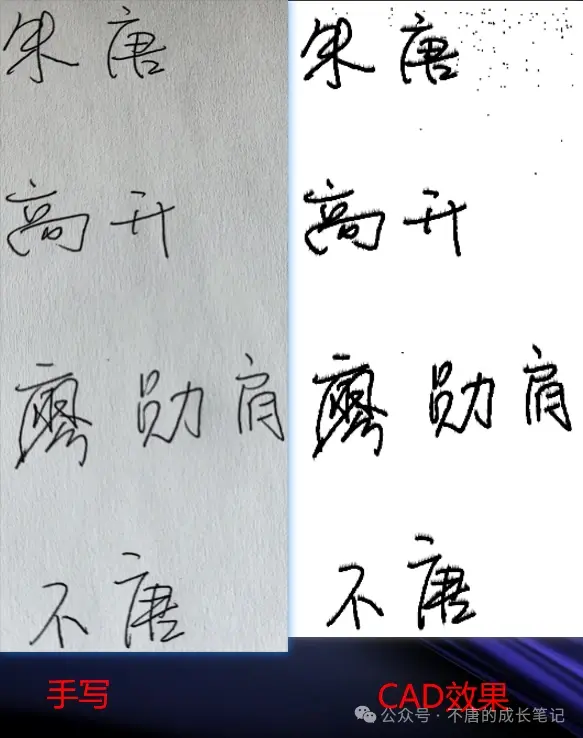 朱唐 朱唐
高升 高升
廖勋肩 廖勋肩
不唐 不唐
手写 CAD效果
公众号·不唐的成长笔记